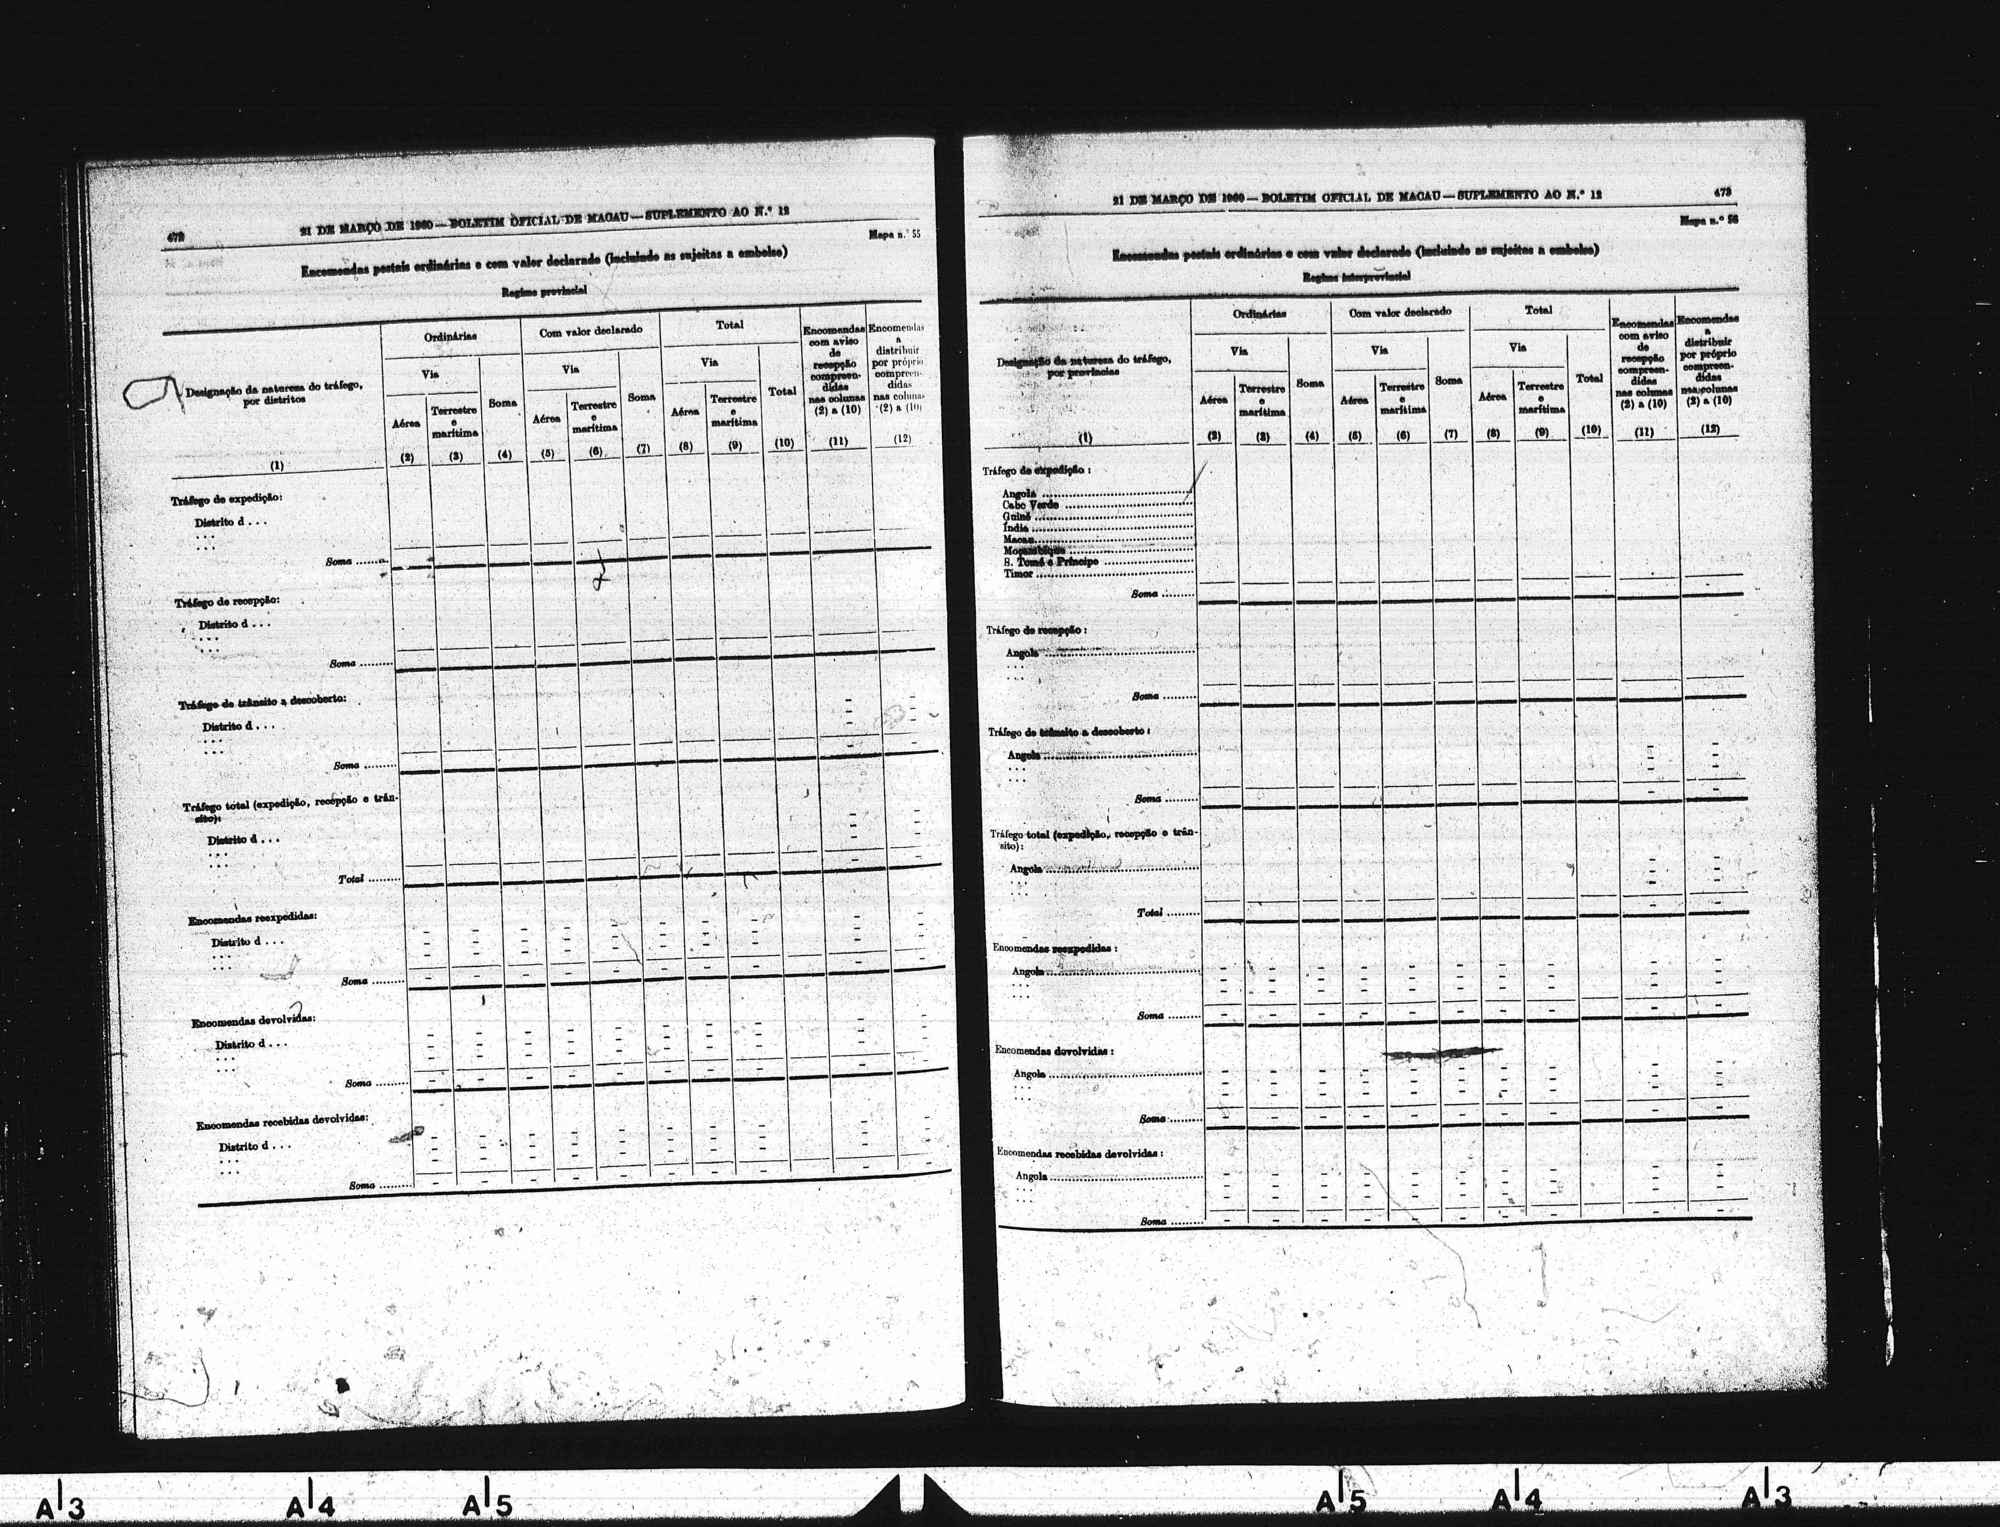 472
21 DE MARÇO DE 1960 — BOLETIM OFICIAL DE MACAU — SUPLEMENTO AO N.º 12
Mapa n.º 55
Encomendas postais ordinárias e com valor declarado (incluindo as sujeitas a embolso)
Regime provincial
Designação da natureza do tráfego,
por distritos
(1)
Ordinárias
Via
Aérea
(2)
Terrestre
e
marítima
(3)
Soma
(4)
Com valor declarado
Via
Aérea
(5)
Terrestre
e
marítima
(6)
Soma
(7)
Total
Via
Aérea
(8)
Terrestre
e
marítima
(9)
Total
(10)
Encomendas
com aviso
de
recepção
compreen-
didas
nas colunas
(2) a (10)
(11)
Encomendas
a
distribuir
por próprio
compreen-
didas
nas colunas
(2) a (10)
(12)
Tráfego de expedição:
Distrito d . . .
. . .
. . .
Soma ........
Tráfego de recepção:
Distrito d . . .
. . .
. . .
Soma .........
Tráfego de trânsito a descoberto:
Distrito d . . .
. . .
. . .
Soma .........
Tráfego total (expedição, recepção e trân-
sito):
Distrito d . . .
. . .
. . .
Total .........
Encomendas reexpedidas:
Distrito d . . .
. . .
. . .
Soma .........
Encomendas devolvidas:
Distrito d . . .
. . .
. . .
Soma .........
Encomendas recebidas devolvidas:
Distrito d . . .
. . .
. . .
Soma .........
21 DE MARÇO DE 1960 — BOLETIM OFICIAL DE MACAU — SUPLEMENTO AO N.º 12
473
Mapa n.º 56
Encomendas postais ordinárias e com valor declarado (incluindo as sujeitas a embolso)
Regime interprovincial
Designação da natureza do tráfego,
por províncias
(1)
Ordinárias
Via
Aérea
(2)
Terrestre
e
marítima
(3)
Soma
(4)
Com valor declarado
Via
Aérea
(5)
Terrestre
e
marítima
(6)
Soma
(7)
Total
Via
Aérea
(8)
Terrestre
e
marítima
(9)
Total
(10)
Encomendas
com aviso
de
recepção
compreen-
didas
nas colunas
(2) a (10)
(11)
Encomendas
a
distribuir
por próprio
compreen-
didas
nas colunas
(2) a (10)
(12)
Tráfego de expedição:
Angola ........
Cabo Verde ........
Guiné ........
Índia ........
Macau ........
Moçambique ........
S. Tomé e Príncipe ........
Timor ........
Soma .........
Tráfego de recepção:
Angola ........
. . .
. . .
Soma .........
Tráfego de trânsito a descoberto:
Angola ........
. . .
. . .
Soma .........
Tráfego total (expedição, recepção e trân-
sito):
Angola ........
. . .
. . .
Total .........
Encomendas reexpedidas:
Angola ........
. . .
. . .
Soma .........
Encomendas devolvidas:
Angola ........
. . .
. . .
Soma .........
Encomendas recebidas devolvidas:
Angola ........
. . .
. . .
Soma .........
A 3
A 4
A 5
A 5
A 4
A 3